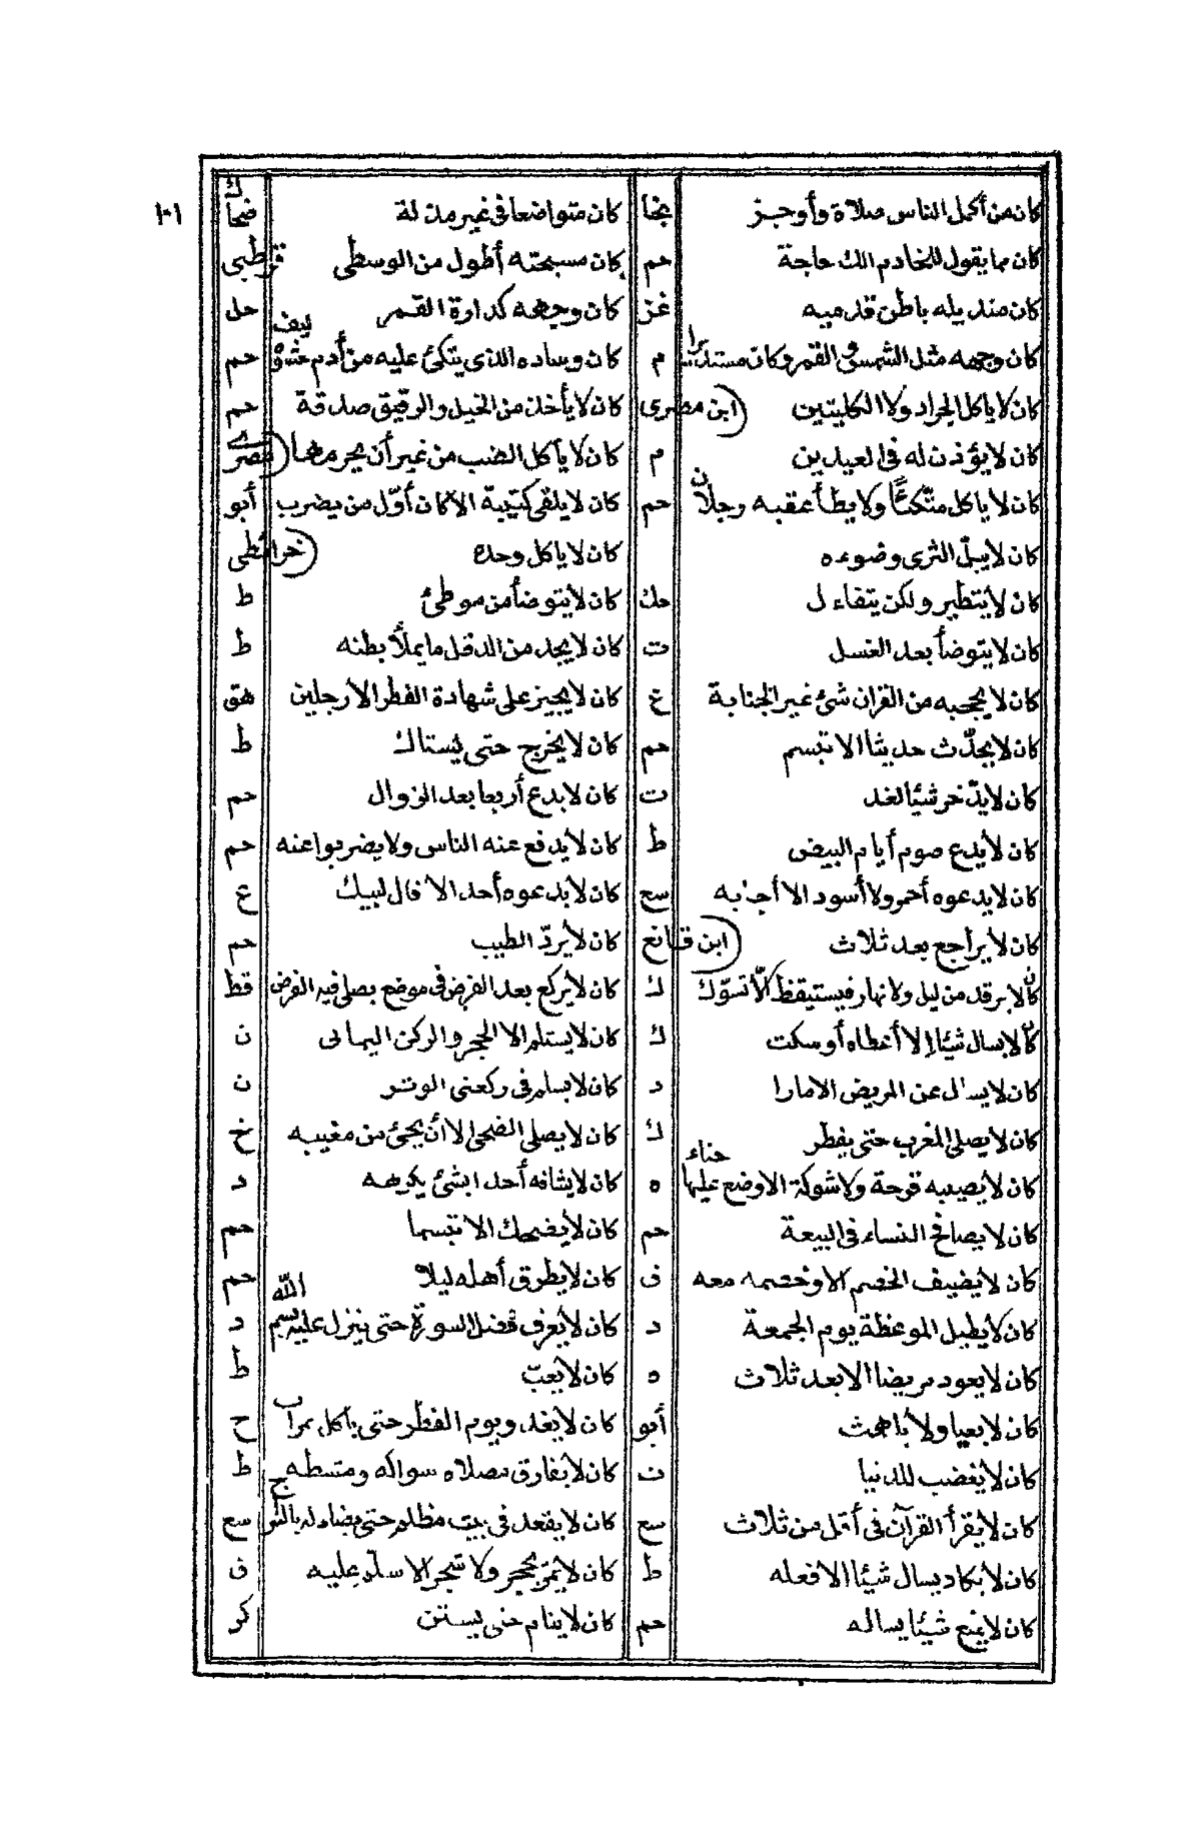 ١٠١
كان من أكمل الناس صلاة وأوجز بخا كان متواضعا في غير مذلة ضحاك
كان مما يقول للخادم الك حاجة حم كان مسبحته أطول من الوسطى قرطبى
كان منديله باطن قدميه غز كان وجهه كدارة القمر حل
كان وجهه مثل الشمس والقمر وكان مستديرا م كان وساده الذى يتكئ عليه من أدم حشوه ليف حم
كان لا يأكل الجراد ولا الكليتين (ابن مصرى كان لا يأخذ من الخيل والرقيق صدقة حم
كان لا يؤذن له فى العيدين م كان لا يأكل الضب من غير أن يحرمها (مصرى
كان لا يأكل متكئًا ولا يطأ عقبه رجلان حم كان لا يلقى كتيبة الا كان أوّل من يضرب أبو
كان لا يبلّ الثرى وضوءه كان لا يأكل وحده (خرائطى
كان لا يتطير ولكن يتفاءل حك كان لا يتوضأ من موطئ ط
كان لا يتوضأ بعد الغسل ت كان لا يجد من الدقل ما يملأ بطنه ط
كان لا يحجبه من القران شئ غير الجنابة غ كان لا يجيز على شهادة الفطر الا رجلين هق
كان لا يحدّث حديثا الا تبسم حم كان لا يخرج حتى يستاك ط
كان لا يدّخر شيئا لغد ت كان لا يدع أربعا بعد الزوال حم
كان لا يدع صوم أيام البيض ط كان لا يدفع عنه الناس ولا يضربوا عنه حم
كان لا يدعوه أحمر ولا أسود الا أجابه سع كان لا يدعوه أحد الا قال لبيك ع
كان لا يراجع بعد ثلاث (ابن قانع كان لا يردّ الطيب حم
كان لا يرقد من ليل ولا نهار فيستيقظ الّا تسوّك ك كان لا يركع بعد الفرض فى موضع يصلى فيه الفرض قط
كان لا يسال شيئا إلا أعطاه أو سكت ك كان لا يستلم الا الحجر والركن اليمانى ن
كان لا يسال عن المريض الا مارا د كان لا يسلم فى ركعتى الوتر ن
كان لا يصلى المغرب حتى يفطر ك كان لا يصلى الضحى الا أن يجئ من مغيبه خ
كان لا يصيبه قرحة ولا شوكة الا وضع عليها حناء ه كان لا يشافه أحدا بشئ يكرهه د
كان لا يصافح النساء فى البيعة حم كان لا يضحك الا تبسما حم
كان لا يضيف الخصم الا وخصمه معه ق كان لا يطرق أهله ليلا حم
كان لا يطيل الموعظة يوم الجمعة د كان لا يعرف فضل السورة حتى ينزل عليه بسم الله د
كان لا يعود مريضا الا بعد ثلاث ه كان لا يعبّ ط
كان لا يعيا ولا أبو كان لا يغدو يوم الفطر حتى يأكل تمرات خ
كان لا يغضب للدنيا ت كان لا يفارق مصلاه سواكه ومشطه ط
كان لا يقرأ القرآن فى أقل من ثلاث سع كان لا يقعد فى بيت مظلم حتى يضاء له بالسراج سع
كان لا يكاد يسال شيئا الا فعله ط كان لا يمرّ بحجر ولا شجر الا سلّم عليه ق
كان لا يمنع شيئا يساله حم كان لا ينام حتى يستن كر